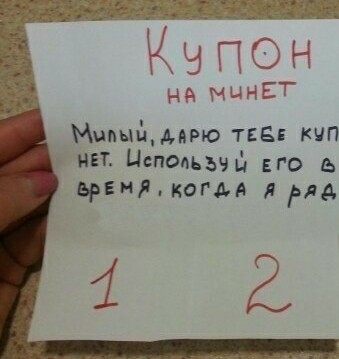 Купон
на минет
Милый, дарю тебе куп
нет. Используй его в
время, когда я ряд
1 2